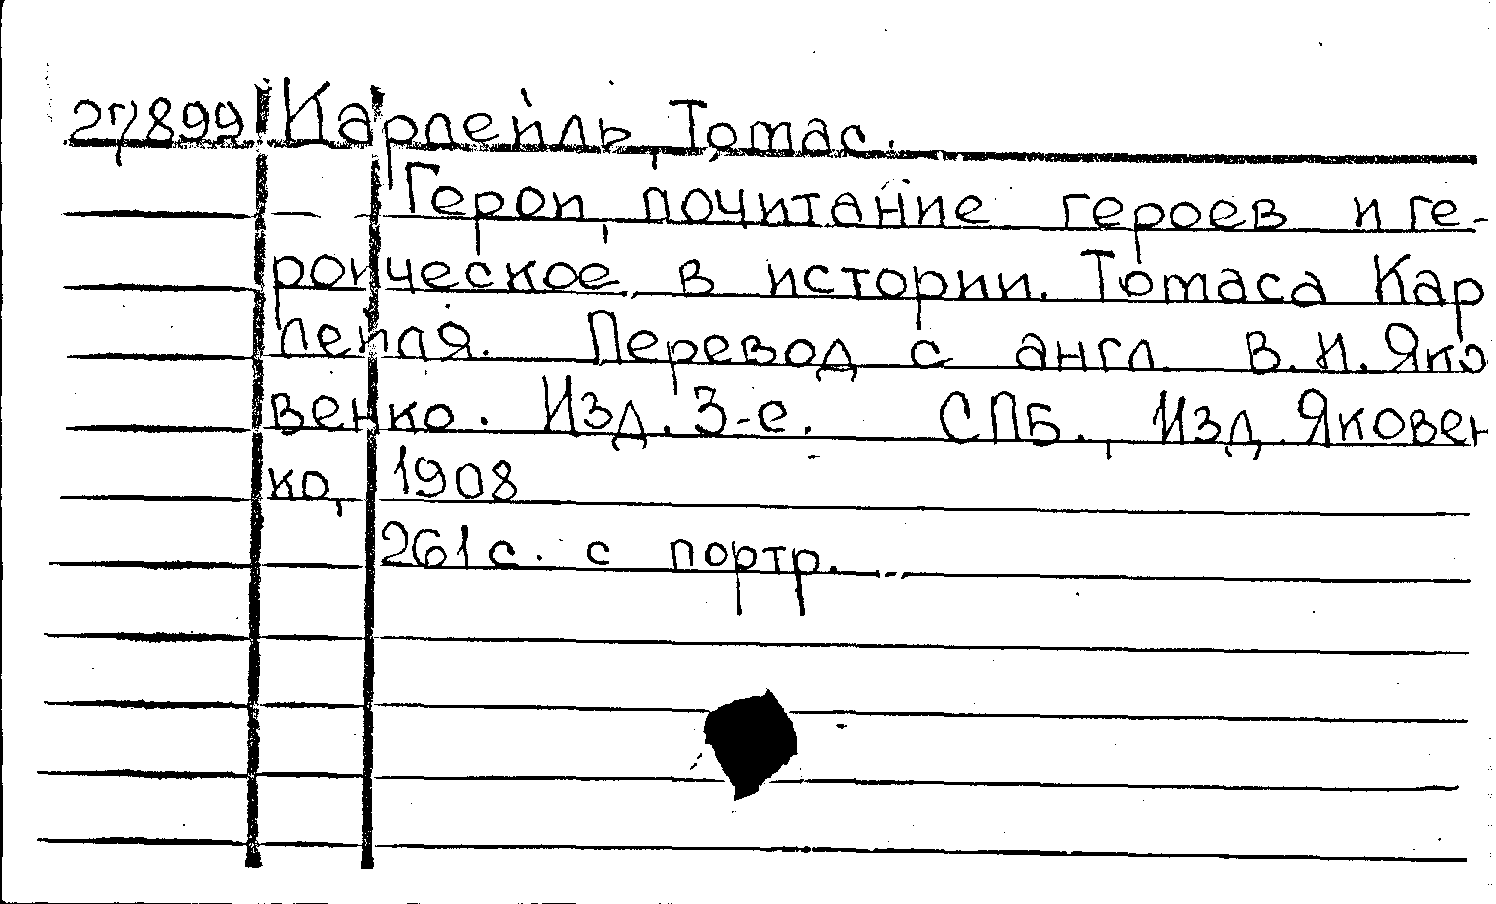 27899 Карлейль, Томас.
Герои, почитание героев и ге-
роическое, в истории. Томаса Кар
лейля. Перевод с англ. В.И. Яко
венко. Изд. 3-е. СПБ., Изд. Яковен
ко, 1908
261 с. с портр.